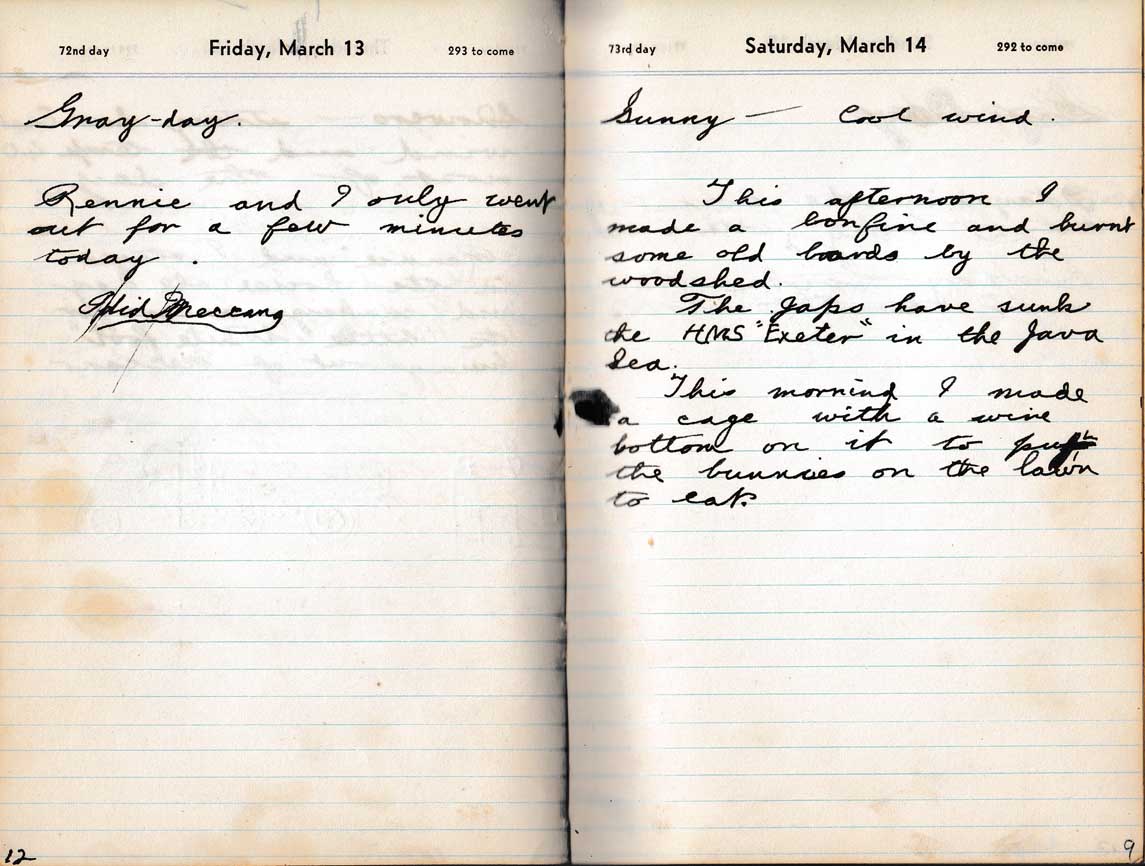 72nd day Friday, March 13 293 to come
Gray-day.
Rennie and I only went
out for a few minutes
today .
Did Meccano
12
73rd day Saturday, March 14 292 to come
Sunny — Cool wind.
This afternoon I
made a bonfire and burnt
some old boards by the
woodshed.
The Japs have sunk
the HMS "Exeter" in the Java
Sea.
This morning I made
a cage with a wire
bottom on it to put
the bunnies on the lawn
to eat.
9